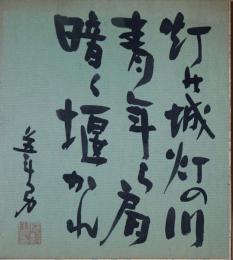 灯は城灯の川
青年ら肩
暗く堰かれ